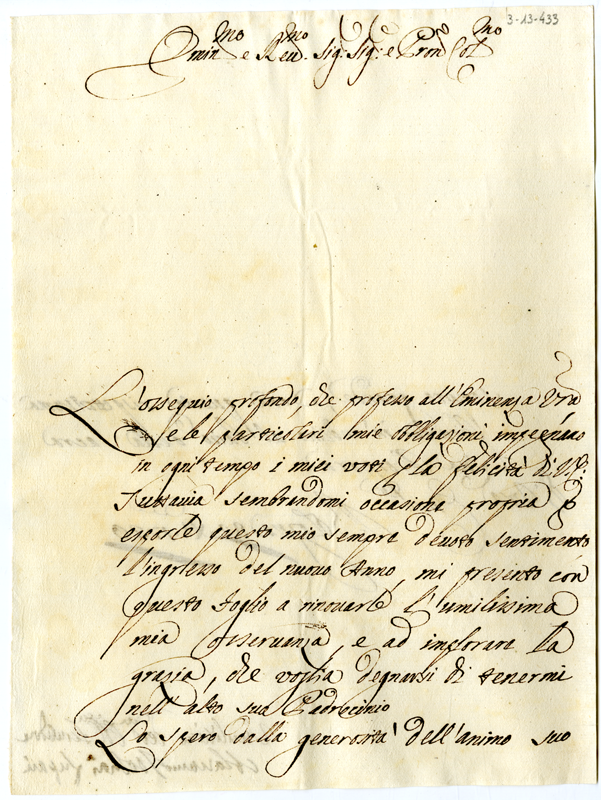 3-13-433
Emin.mo e Reu.mo Sig: Sig: e Pron Col.mo
L'ossequio profondo, che professo all'Eminenza Vra
e le particolari mie obbligazioni impegnano
in ogni tempo i miei voti p la felicità di V.E:
Tuttauia sembrandomi occasione propria p
esporle questo mio sempre deuoto sentimento
l'ingresso del nuouo Anno, mi presento con
questo foglio a rinouarle l'umilissima
mia osseruanza, e ad implorare la
grazia, che voglia degnarsi di tenermi
nell'alto suo Padrocinio
Lo spero dalla generosità dell'animo suo